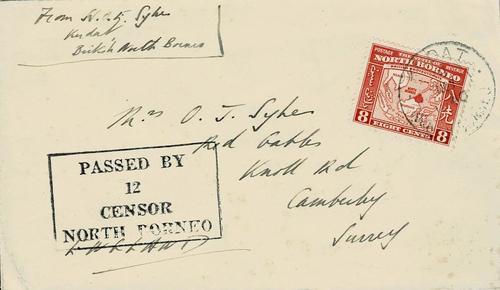 From H.C.G. Syke
Kudat
British North Borneo
POSTAGE REVENUE
THE STATE OF
NORTH BORNEO
8 EIGHT CENTS 8
DAT
Mrs O. J. Sykes
Red Gables
Knoll Rd
Camberley
Surrey
PASSED BY
12
CENSOR
NORTH BORNEO
ENGLAND